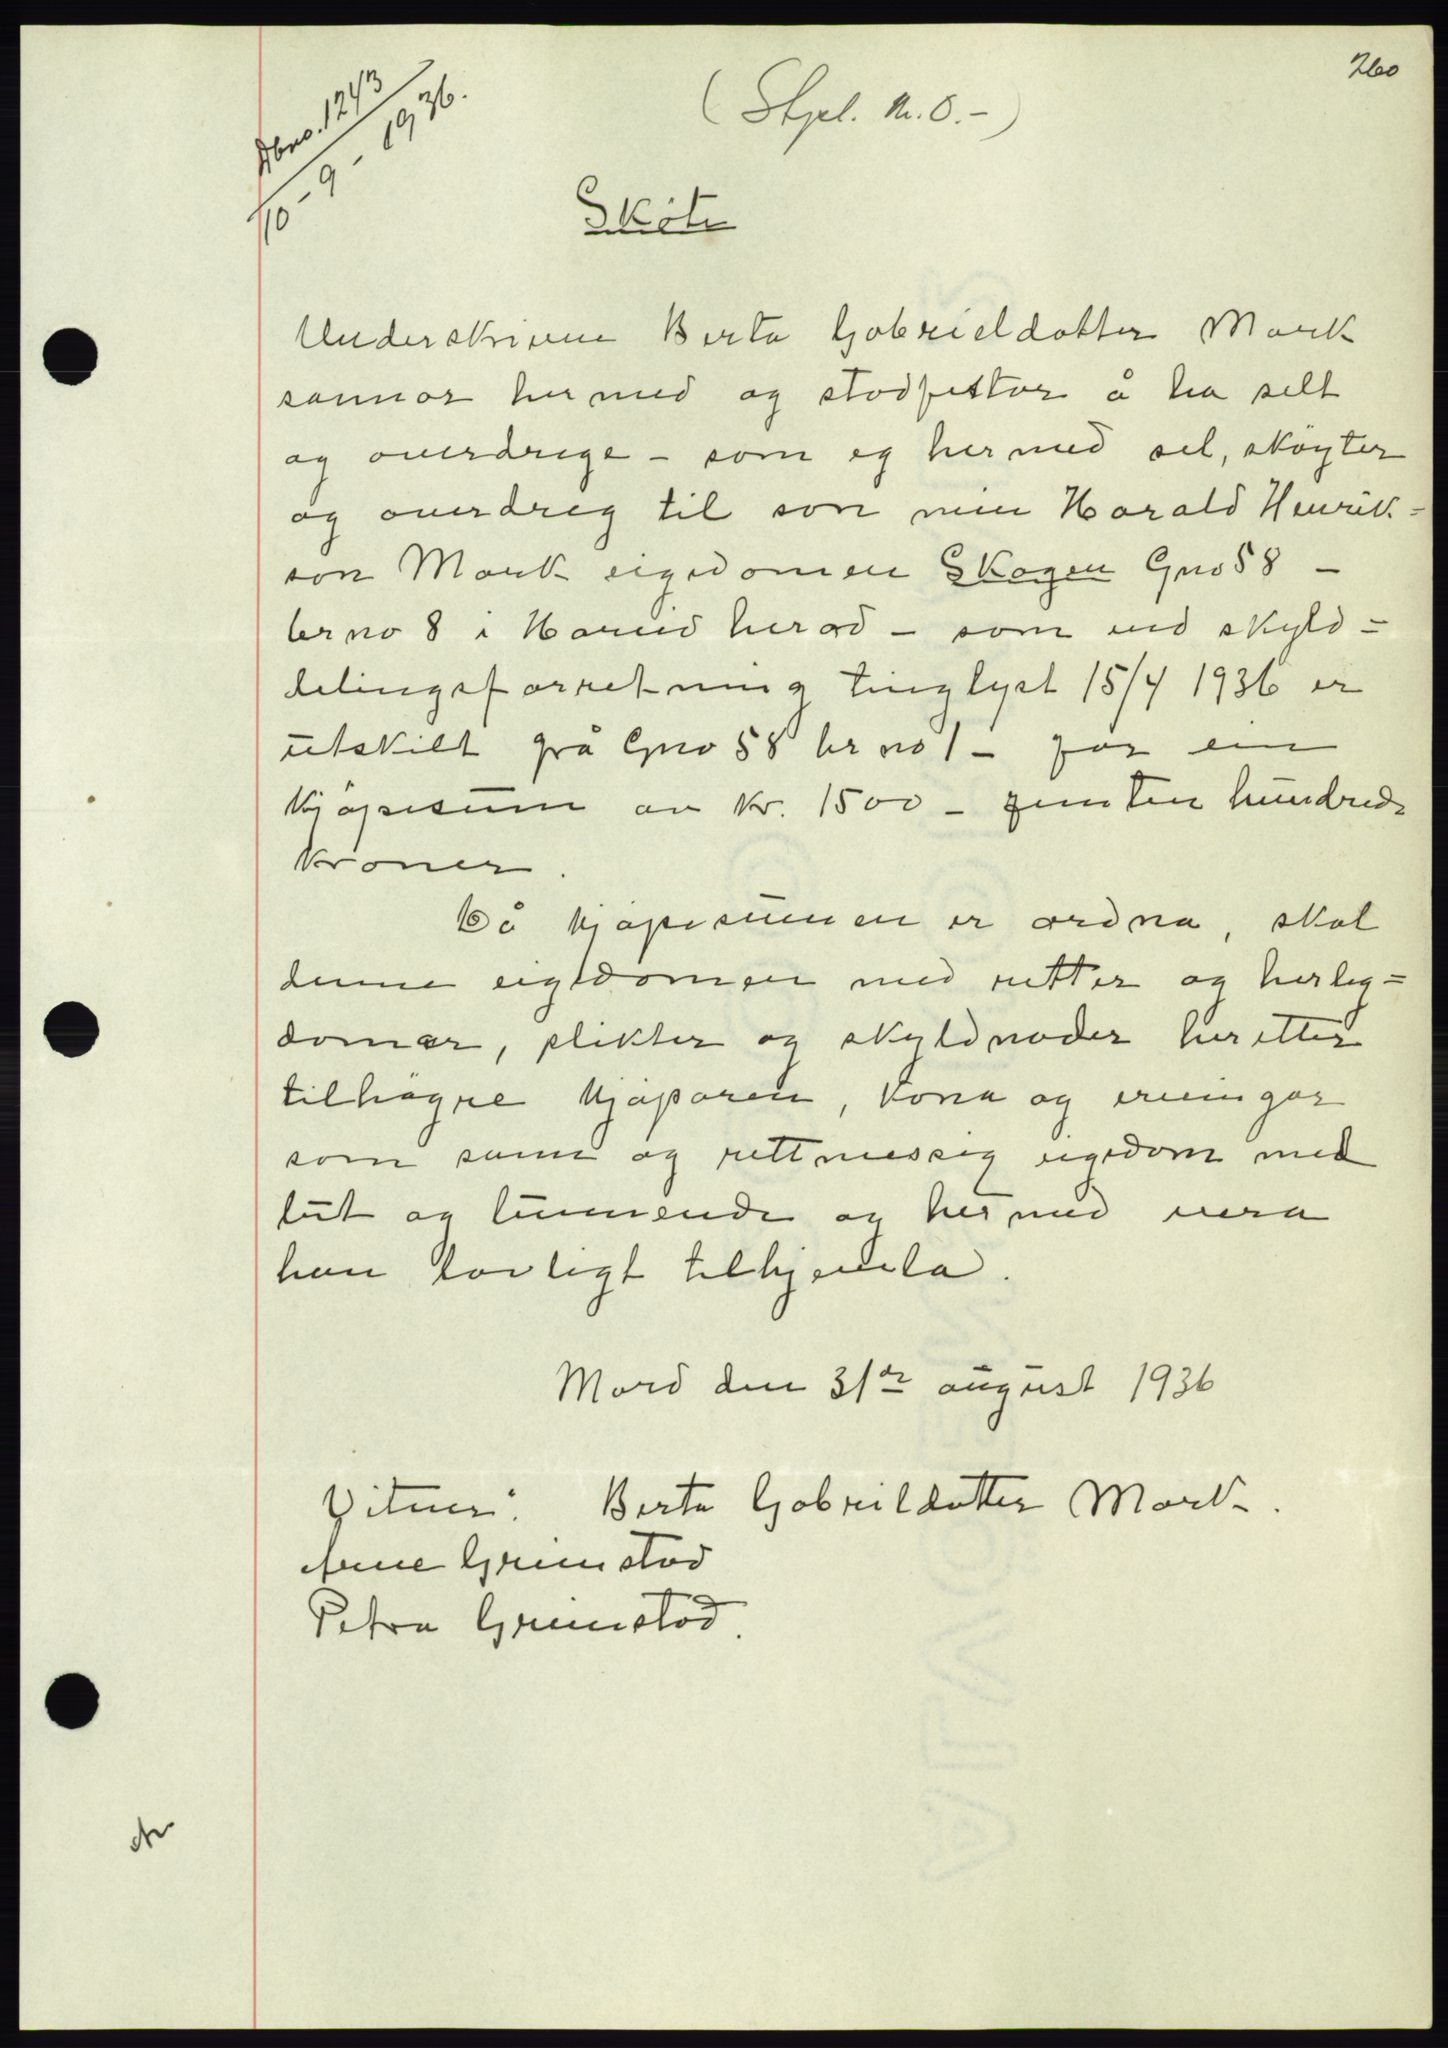 260
Dbno. 1243
10-9-1936.
(Stpl. kr. 8.-)
Skøte
Underskrivne Berta Gabrieldotter Mork
sannar hermed og stadfestar å ha selt
og overdrege - som eg hermed sel, skøyter
og overdreg til son min Harald Henrik=
son Mork eigedomen Skogen Gno 58 -
br no 8 i Hareid herad - som ved skyld=
delingsforretning tinglyst 15/4 1936 er
utskilt frå Gno 58 br no 1 - for ein
kjøpesum av kr. 1500 - femten hundrede
kroner.
Då kjøpesummen er ordna, skal
denne eigedomen med retter og herleg=
domar, plikter og skyldnader heretter
tilhøyre kjøparen, kona og ervingar
som sann og rettmessig eigedom med
lut og lunnende og hermed vera
han lovlegt tilhjemla.
Mork den 31te august 1936
Vitner: Berta Gabrieldotter Mork.
Arne Grimstad
Petra Grimstad.